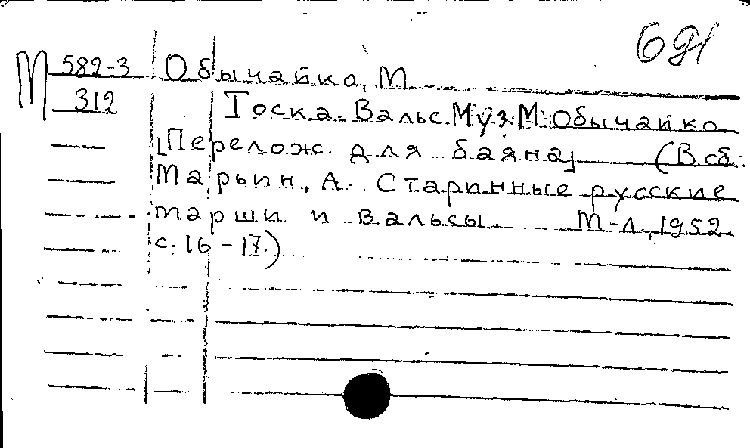 691
М 582-3 Обычайко, М.
312 Тоска. Вальс. Муз. М. Обычайко.
[Перелож. для баяна] (В сб.:
Марьин, А. Старинные русские
марши и вальсы. М-Л, 1952
с. 16-17.)